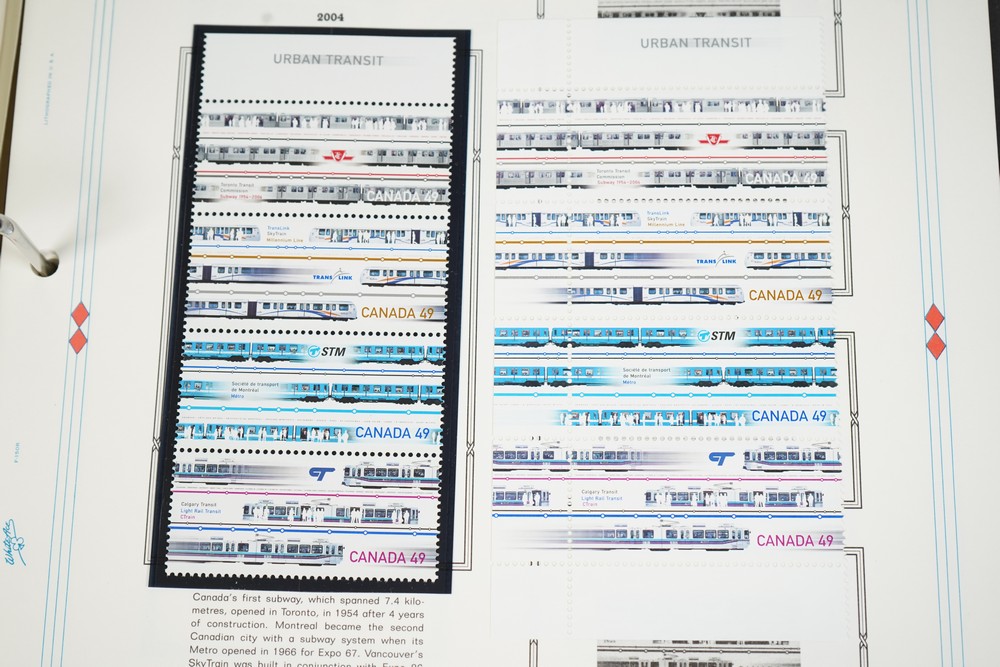 2004
URBAN TRANSIT
Toronto Transit
Commission
Subway 1954-2004
CANADA 49
TransLink
SkyTrain
Millennium Line
TRANS LINK
CANADA 49
STM
Société de transport
de Montréal
Métro
CANADA 49
CT
Calgary Transit
Light Rail Transit
CTrain
CANADA 49
URBAN TRANSIT
Toronto Transit
Commission
Subway 1954-2004
CANADA 49
TransLink
SkyTrain
Millennium Line
TRANS LINK
CANADA 49
STM
Société de transport
de Montréal
Métro
CANADA 49
CT
Calgary Transit
Light Rail Transit
CTrain
CANADA 49
Canada's first subway, which spanned 7.4 kilo-
metres, opened in Toronto, in 1954 after 4 years
of construction. Montreal became the second
Canadian city with a subway system when its
Metro opened in 1966 for Expo 67. Vancouver's
SkyTrain was built in conjunction with Expo 86